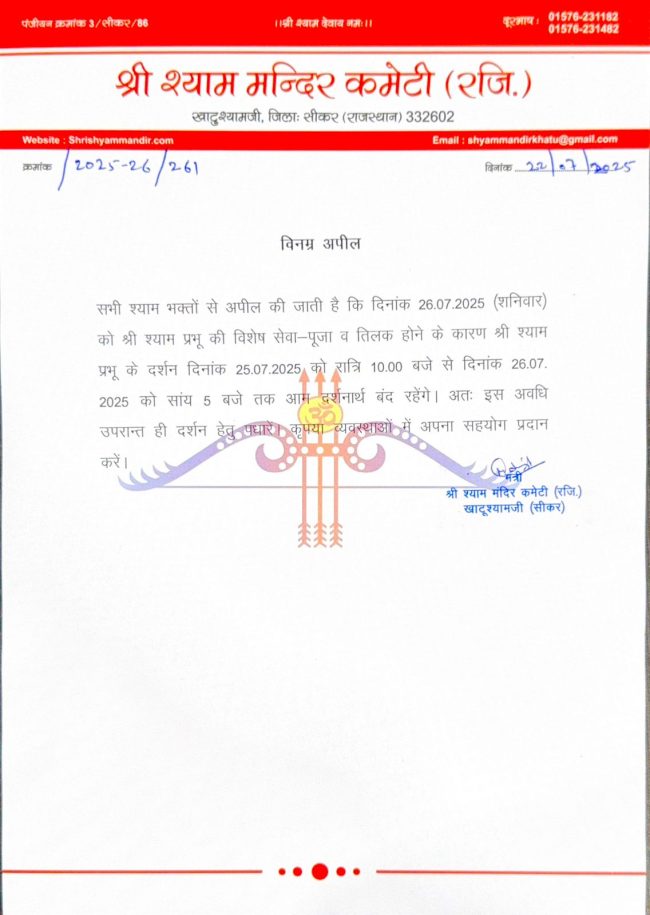 पंजीयन क्रमांक 3/सीकर/86
।।श्री श्याम देवाय नमः।।
दूरभाष : 01576-231182
01576-231482
श्री श्याम मन्दिर कमेटी (रजि.)
खाटूश्यामजी, जिलाः सीकर (राजस्थान) 332602
Website : Shrishyammandir.com
Email : shyammandirkhatu@gmail.com
क्रमांक /2025-26/261
दिनांक 22/07/2025
विनम्र अपील
सभी श्याम भक्तों से अपील की जाती है कि दिनांक 26.07.2025 (शनिवार)
को श्री श्याम प्रभू की विशेष सेवा–पूजा व तिलक होने के कारण श्री श्याम
प्रभू के दर्शन दिनांक 25.07.2025 को रात्रि 10.00 बजे से दिनांक 26.07.
2025 को सांय 5 बजे तक आम दर्शनार्थ बंद रहेंगे। अतः इस अवधि
उपरान्त ही दर्शन हेतु पधारे। कृपया व्यवस्थाओं में अपना सहयोग प्रदान
करें।
ॐ
मंत्री
श्री श्याम मंदिर कमेटी (रजि.)
खाटूश्यामजी (सीकर)